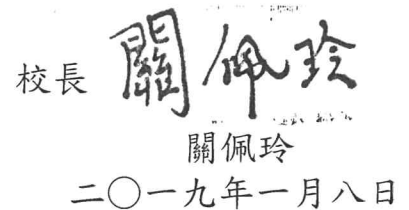 校長 關佩玲
關佩玲
二〇一九年一月八日